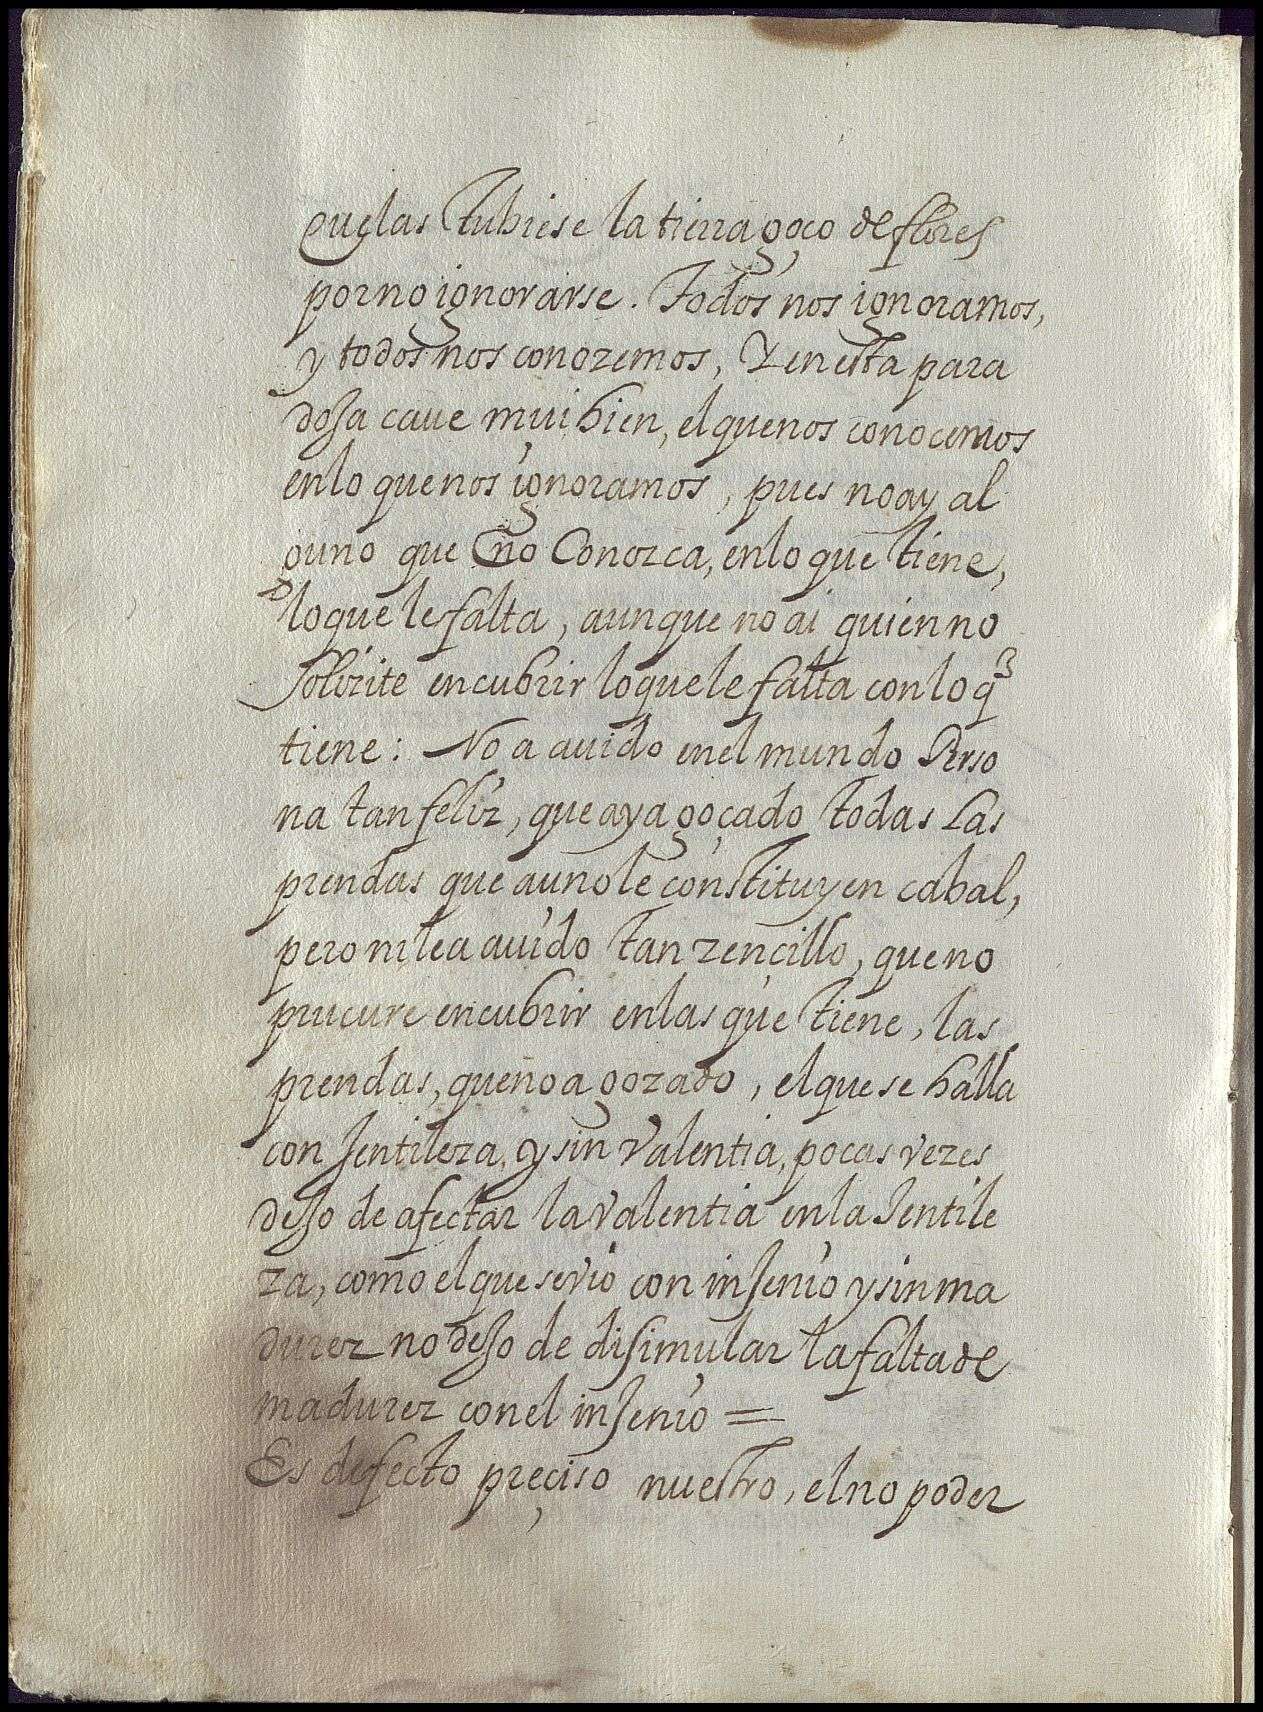 que las tubiese la tierra goço de flores
por no ignorarse. Todos nos ignoramos,
y todos nos conozemos, Y en esta para
doJa caue mui bien, el que nos conocemos
en lo que nos ignoramos, pues no ay al
guno que no Conozca, en lo que tiene,
lo que le falta, aunque no ai quien no
solizite encubrir lo que le falta con lo q
tiene: No a auido en el mundo Perso
na tan feliz, que aya goçado todas Las
prendas que a uno le constituyen cabal,
pero ni le a auido tan zencillo, que no
prucure encubrir en las que tiene, las
prendas, que no a gozado, el que se halla
con Jentileza, y sin Valentia, pocas vezes
deJo de afectar la valentia en la Jentile
za, como el que se vio con inJenio y sin ma
durez no deJo de disimular la falta de
madurez con el inJenio =
Es defecto preçiso nuestro, el no poder